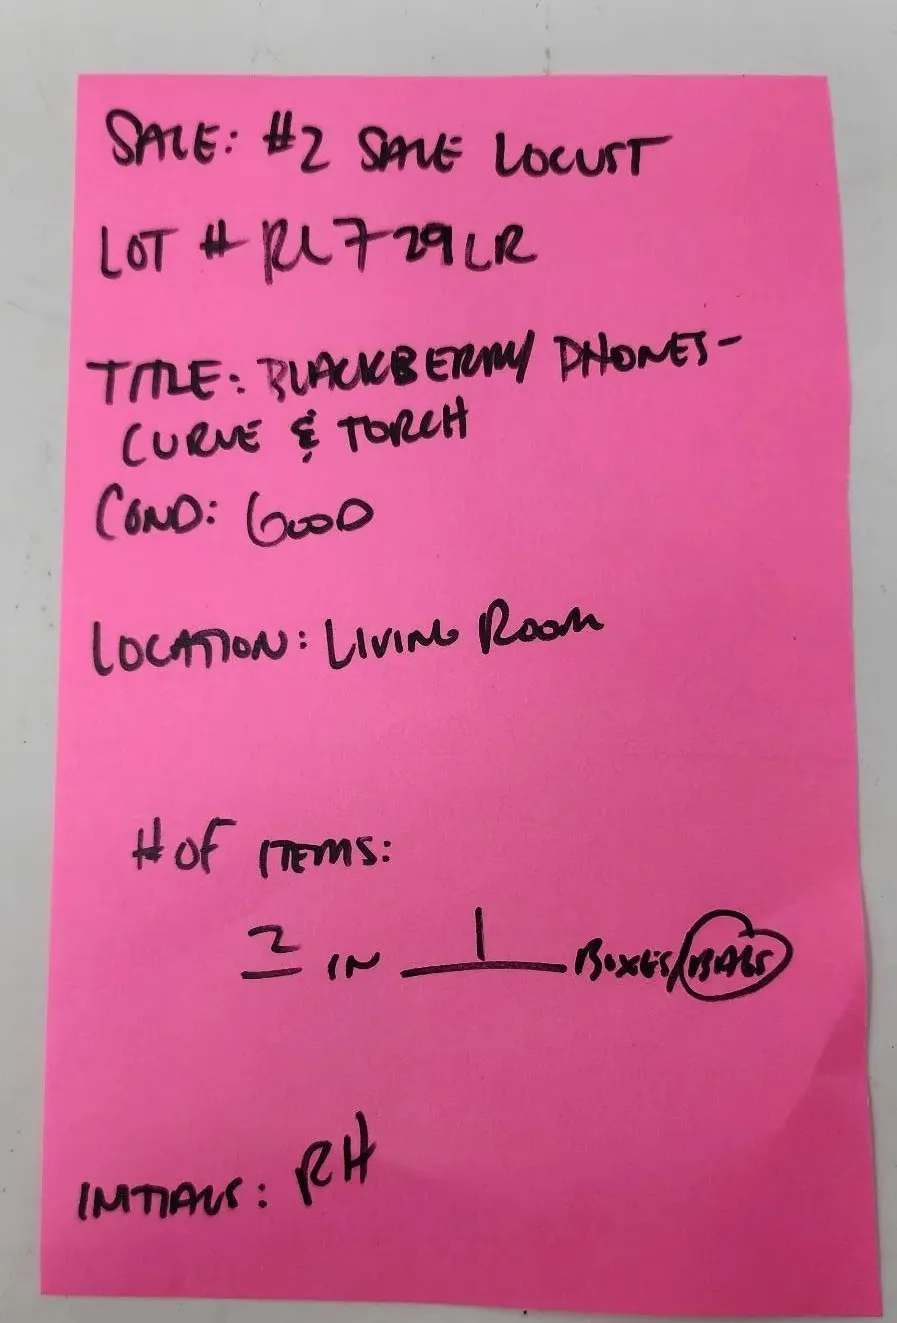 SALE: #2 SALE LOCUST
LOT # RL729LR
TITLE: BLACKBERRY PHONES-
CURVE & TORCH
COND: GOOD
LOCATION: LIVING ROOM
# OF ITEMS:
2 IN 1 BOXES/BAGS
INITIALS: RH